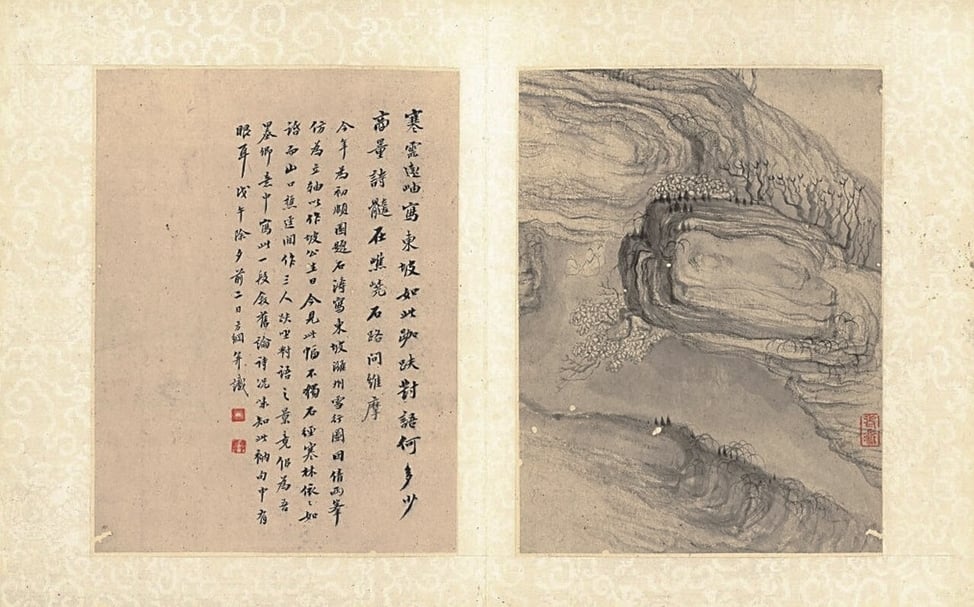 寒雲遠岫寫東坡如此跏趺對語何多少
商量詩髓在嶕嶢石路問維摩
今年為初頤園題石濤寫東坡濰州雪行圖因倩兩峯
仿為立軸以作坡公生日今見此幅不獨石徑寒林依〻如
而山口間作三人趺坐對語之景竟似為吾
墨卿意中寫此一段敘舊論詩況味知此衲句中有
眼耳戊午除夕前二日方綱并識